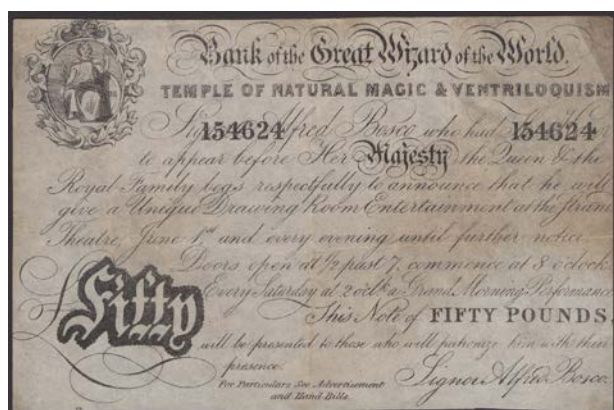 Bank of the Great Wizard of the World.
TEMPLE OF NATURAL MAGIC & VENTRILOQUISM
154624 Alfred Bosco who had 154624
to appear before Her Majesty the Queen & the
Royal Family begs respectfully to announce that he will
give a Unique Drawing Room Entertainment at the Strand
Theatre, June 1st and every evening until further notice
Doors open at ½ past 7, commence at 8 o'clock
Every Saturday at 2 oclk a Grand Morning Performance
Fifty
This Note of FIFTY POUNDS.
will be presented to those who will patronize him with their
presence.
For Particulars See Advertisement
and Hand Bills.
Signor Alfred Bosco.